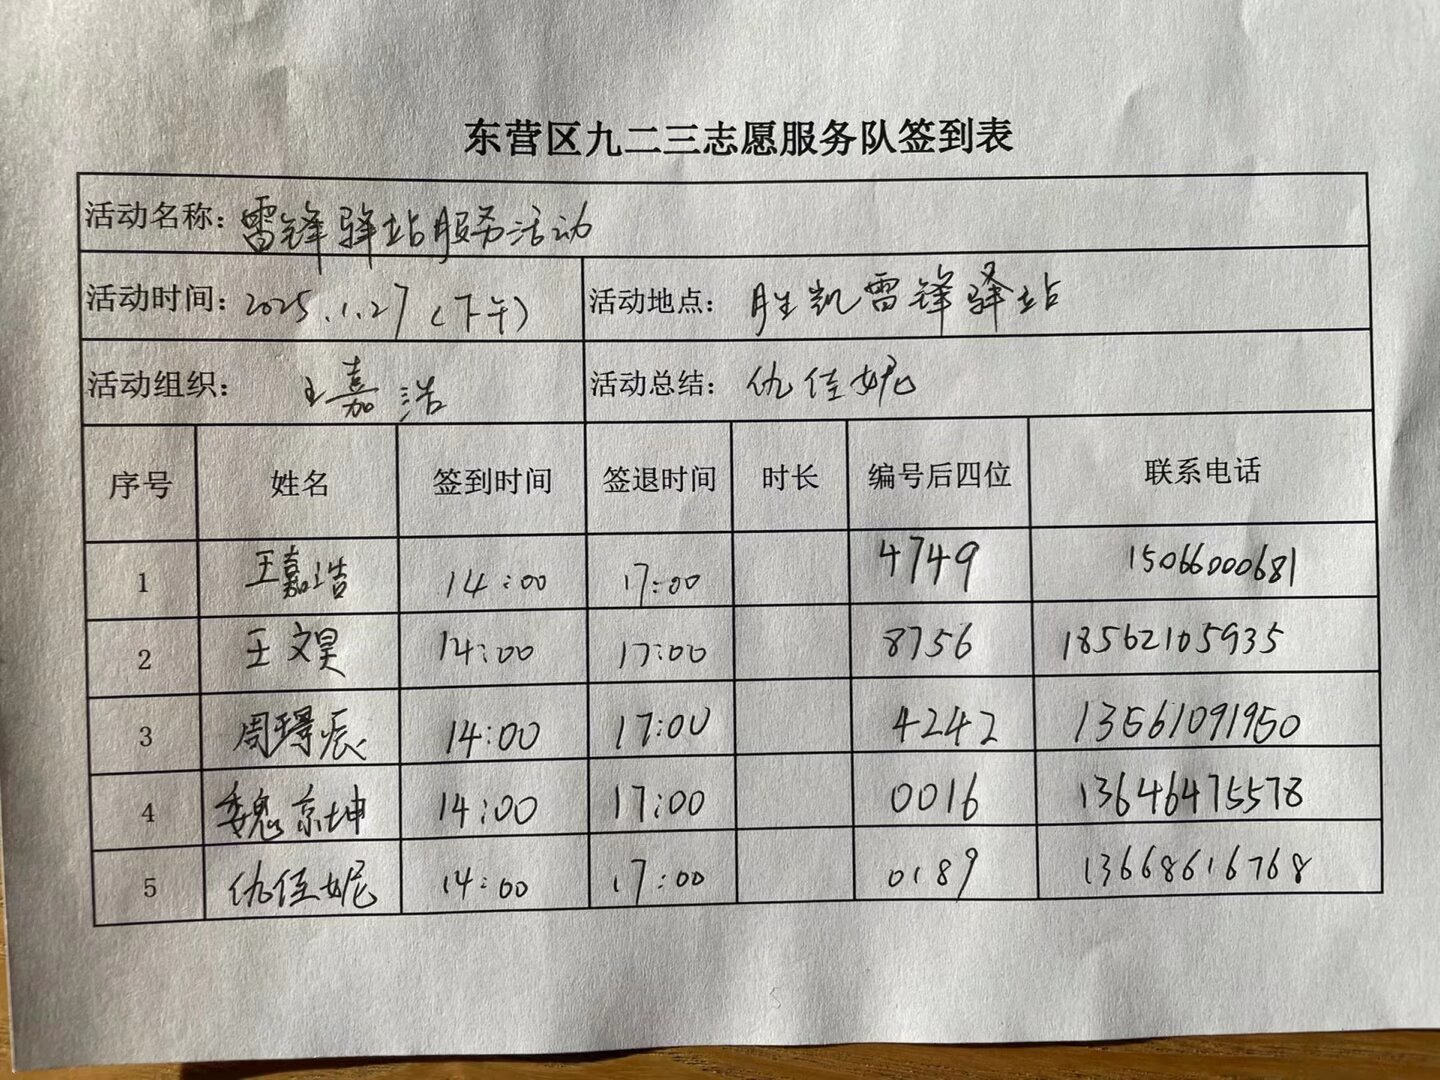 东营区九二三志愿服务队签到表
活动名称：雷锋驿站服务活动
活动时间：2025.1.27（下午） 活动地点：胜凯雷锋驿站
活动组织：王嘉浩 活动总结：仇佳妮
序号 姓名 签到时间 签退时间 时长 编号后四位 联系电话
1 王嘉浩 14:00 17:00 4749 15066000681
2 王文昊 14:00 17:00 8756 18562105935
3 周璟辰 14:00 17:00 4242 13561091950
4 魏京坤 14:00 17:00 0016 13646475578
5 仇佳妮 14:00 17:00 0189 13668616768